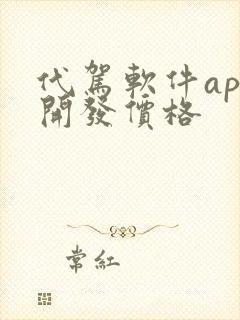 代駕軟件ap
開發價格
常紅